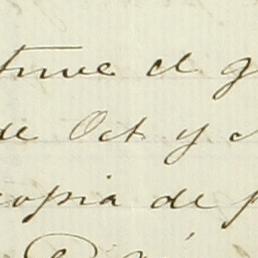 tuve el g
de Oct y
copia de p